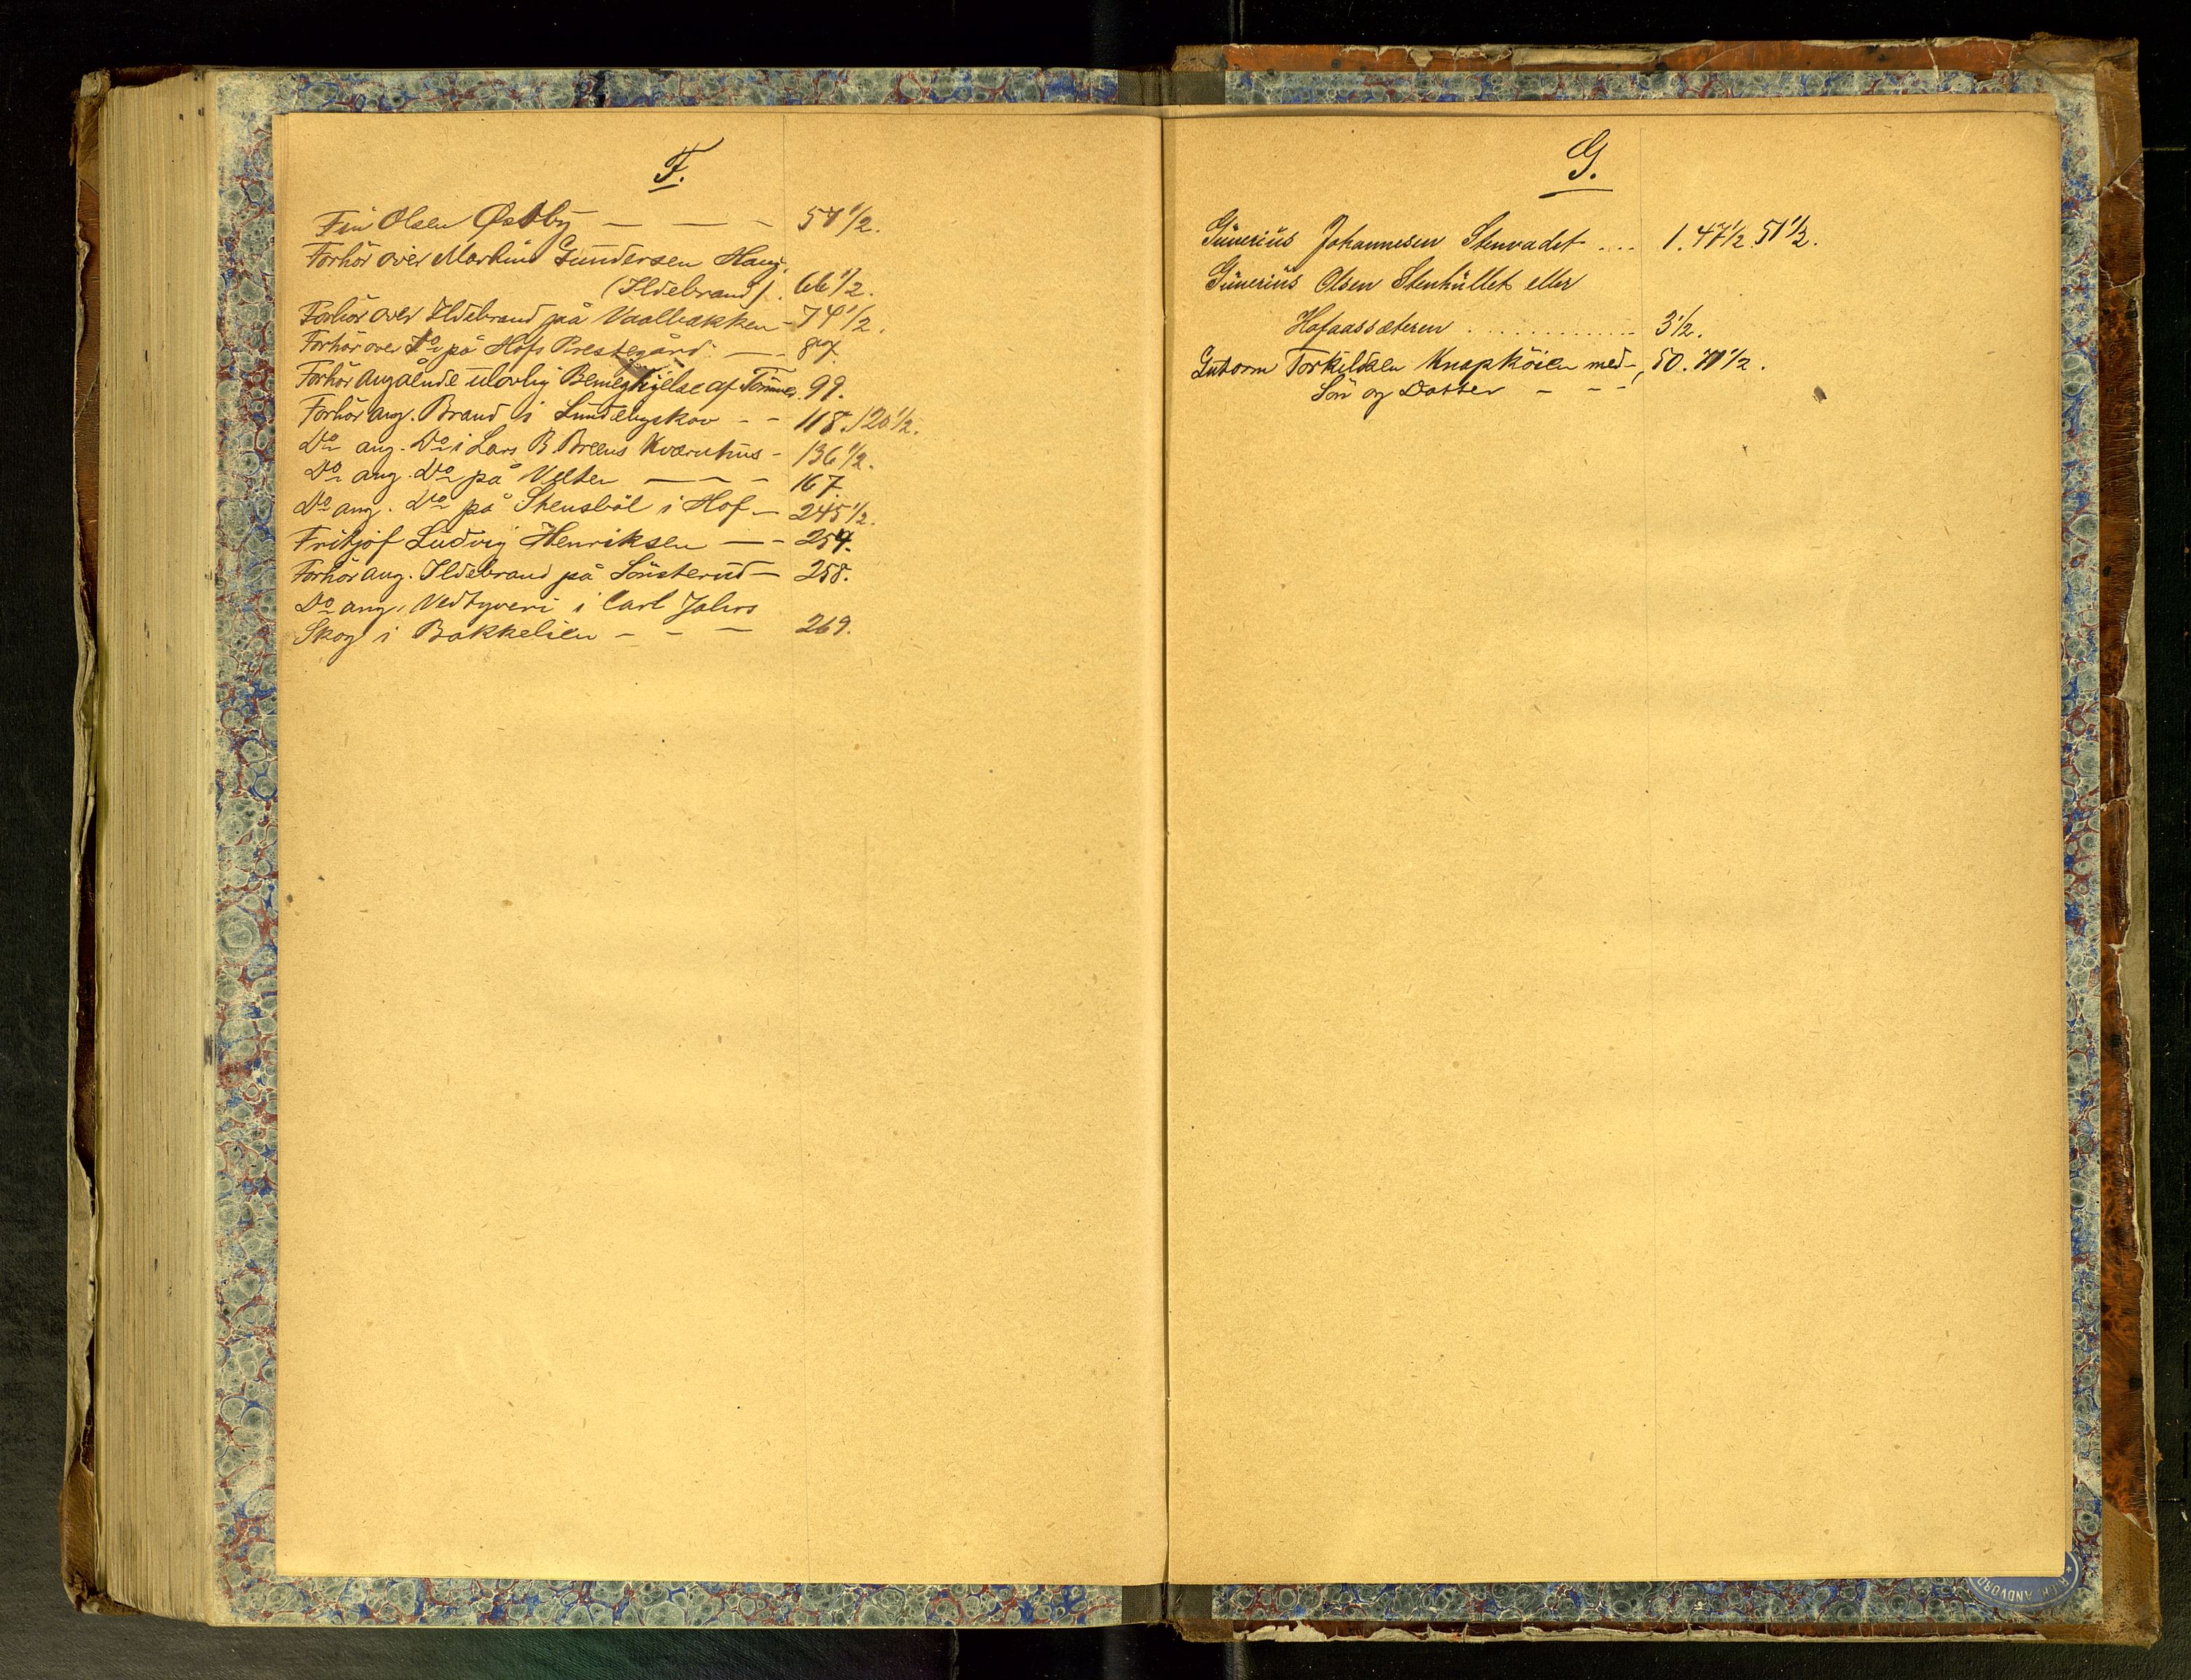 F.
Fin Olsen Østby — — — 57 1/2.
Forhör over Martin Gundersen Haug.
(Ildebrand). 66 1/2.
Forhör over Ildebrand på Vaalbakken - 74 1/2.
Forhör over Do på Hofs Prestegård. — -
Forhör angålende ulovlig Bemegtigelse af Tömmer. 99.
Forhör ang. Brand i Lundebyskov - - 118. 120 1/2.
Do ang. Do i Lars B. Breens Kværnhus - 136 1/2.
Do ang. Do på Velten — - - 167.
Do ang. Do på Stensböl i Hof — 245 1/2.
Fritjof Ludvig Henriksen — - 257.
Forhör ang. Ildebrand på Sönsterud — 258.
Do ang. Vedtyveri i Carl Jahrs
Skog i Bakkelien - - — 269.
G.
Gunerius Johannesen Stenvadet .... 1. 47 1/2. 51 1/2.
Gunerius Olsen Stenhullet eller
Hofaassæteren ............. 3 1/2.
Gutorm Torkildsen Knapköien med -, 50. 70 1/2.
Sön og Datter - - -